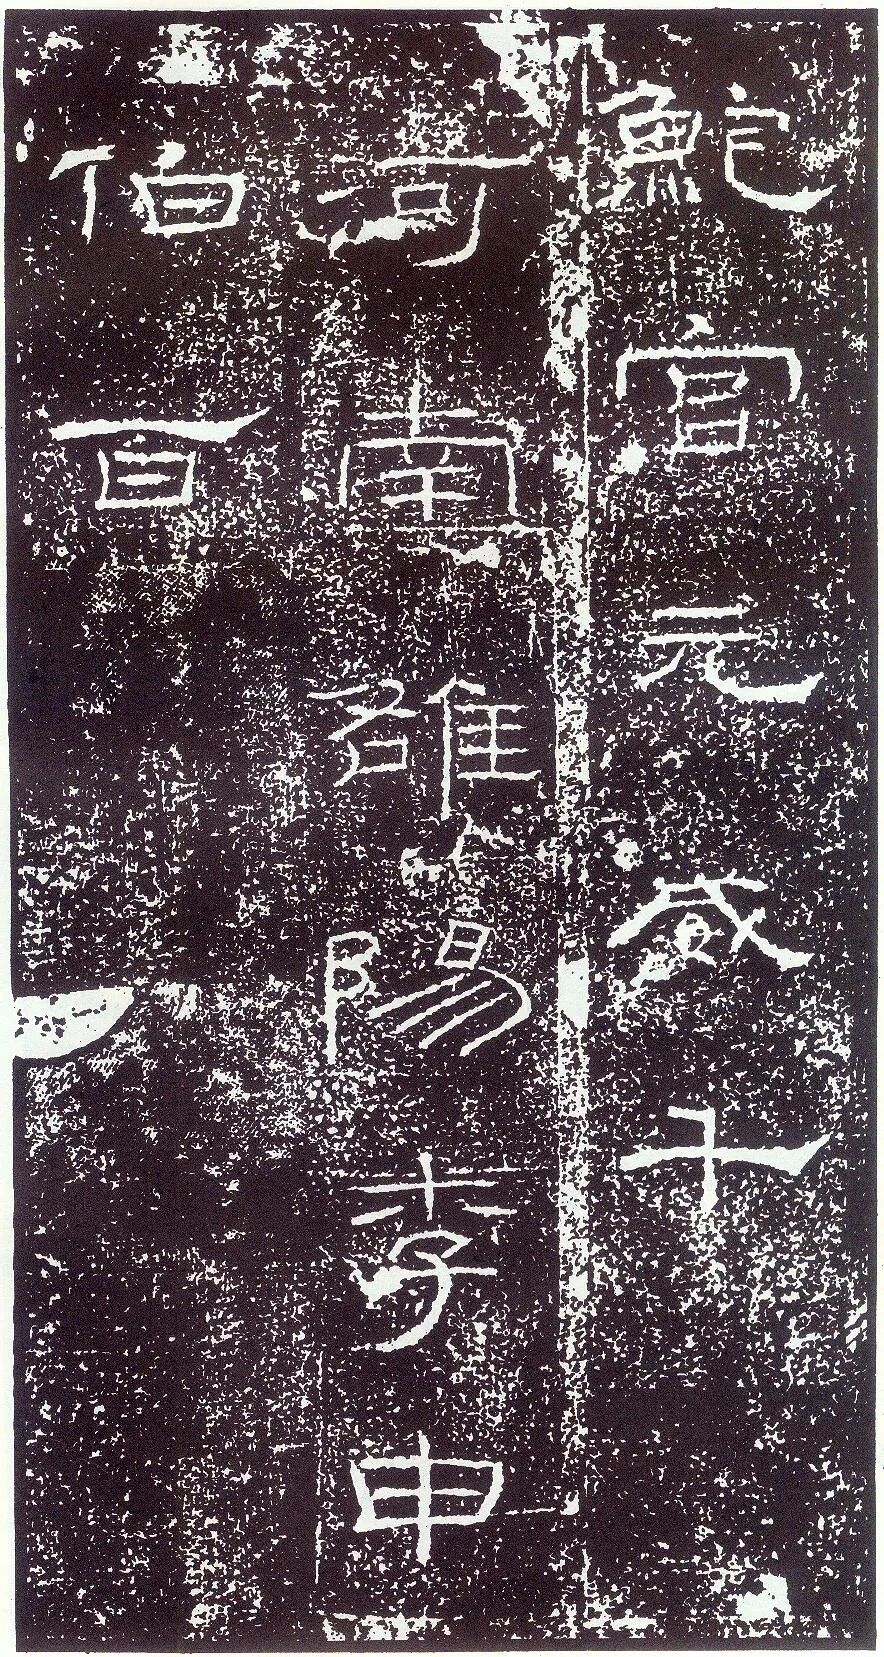 鮑宮元威千
河南雒陽李申
伯百